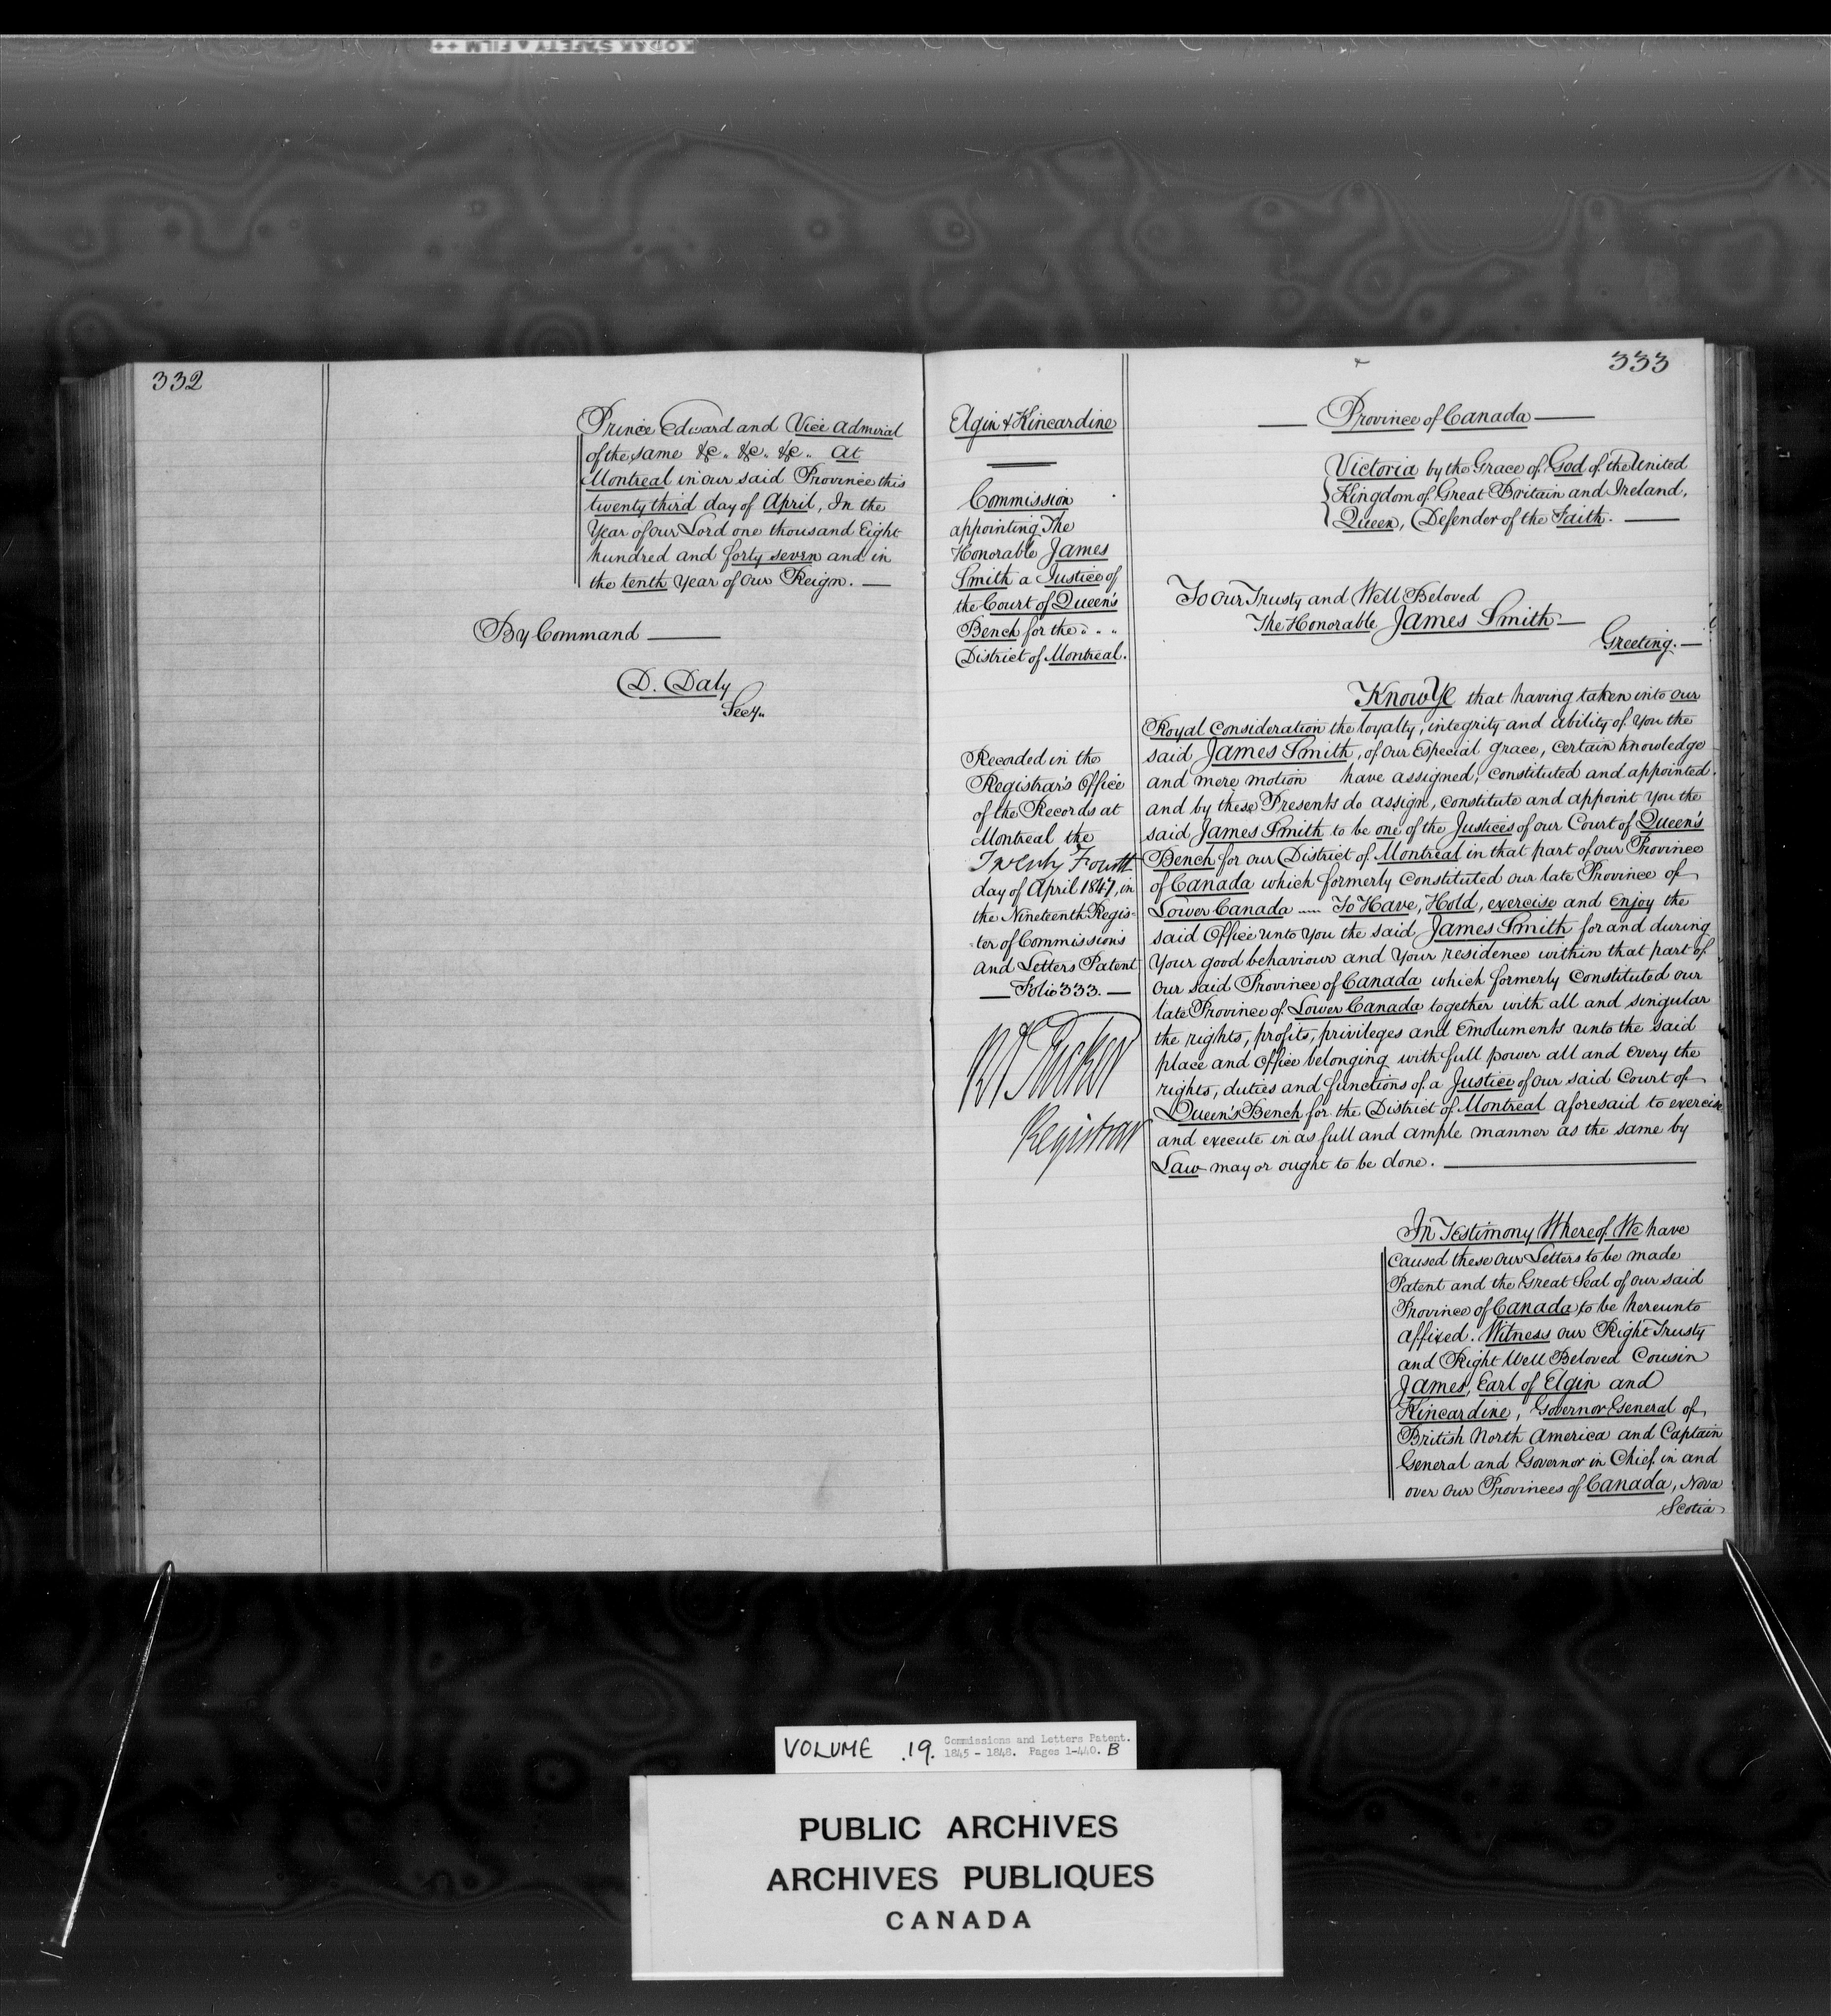 KODAK SAFETY A FILM ++
332
Prince Edward and Vice Admiral
of the same &c. &c. &c. At
Montreal in our said Province this
twenty third day of April, In the
Year of our Lord one thousand Eight
hundred and forty seven and in
the tenth Year of Our Reign. —
By Command —
D. Daly
Secy.
333
Elgin & Kincardine
Commission
appointing The
Honorable James
Smith a Justice of
the Court of Queen's
Bench for the " " "
District of Montreal.
Recorded in the
Registrar's Office
of the Records at
Montreal the
Twenty Fourth
day of April 1847, in
the Nineteenth Regis-
-ter of Commissions
and Letters Patent
— Folio 333. —
Tucker
Registrar
— Province of Canada —
Victoria by the Grace of God of the United
Kingdom of Great Britain and Ireland,
Queen, Defender of the Faith. —
To Our Trusty and Well Beloved
The Honorable James Smith —
Greeting. —
Know Ye that having taken into our
Royal Consideration the loyalty, integrity and ability of You the
said James Smith, of our Especial grace, certain knowledge
and mere motion have assigned, constituted and appointed.
and by these Presents do assign, constitute and appoint You the
said James Smith to be one of the Justices of our Court of Queen's
Bench for our District of Montreal in that part of our Province
of Canada which formerly Constituted our late Province of
Lower Canada ---- To Have, Hold, exercise and enjoy the
said Office unto You the said James Smith for and during
Your good behaviour and Your residence within that part of
our said Province of Canada which formerly Constituted our
late Province of Lower Canada together with all and singular
the rights, profits, privileges and Emoluments unto the said
place and Office belonging with full power all and every the
rights, duties and functions of a Justice of our said Court of
Queen's Bench for the District of Montreal aforesaid to exercise
and execute in as full and ample manner as the same by
Law may or ought to be done. —
In Testimony Whereof We have
Caused these Our Letters to be made
Patent and the Great Seal of our said
Province of Canada to be hereunto
affixed. Witness our Right Trusty
and Right Well Beloved Cousin
James, Earl of Elgin and
Kincardine, Governor General of
British North America and Captain
General and Governor in Chief in and
over Our Provinces of Canada, Nova
Scotia
VOLUME .19. Commissions and Letters Patent.
1845 - 1848. Pages 1-440. B
PUBLIC ARCHIVES
ARCHIVES PUBLIQUES
CANADA